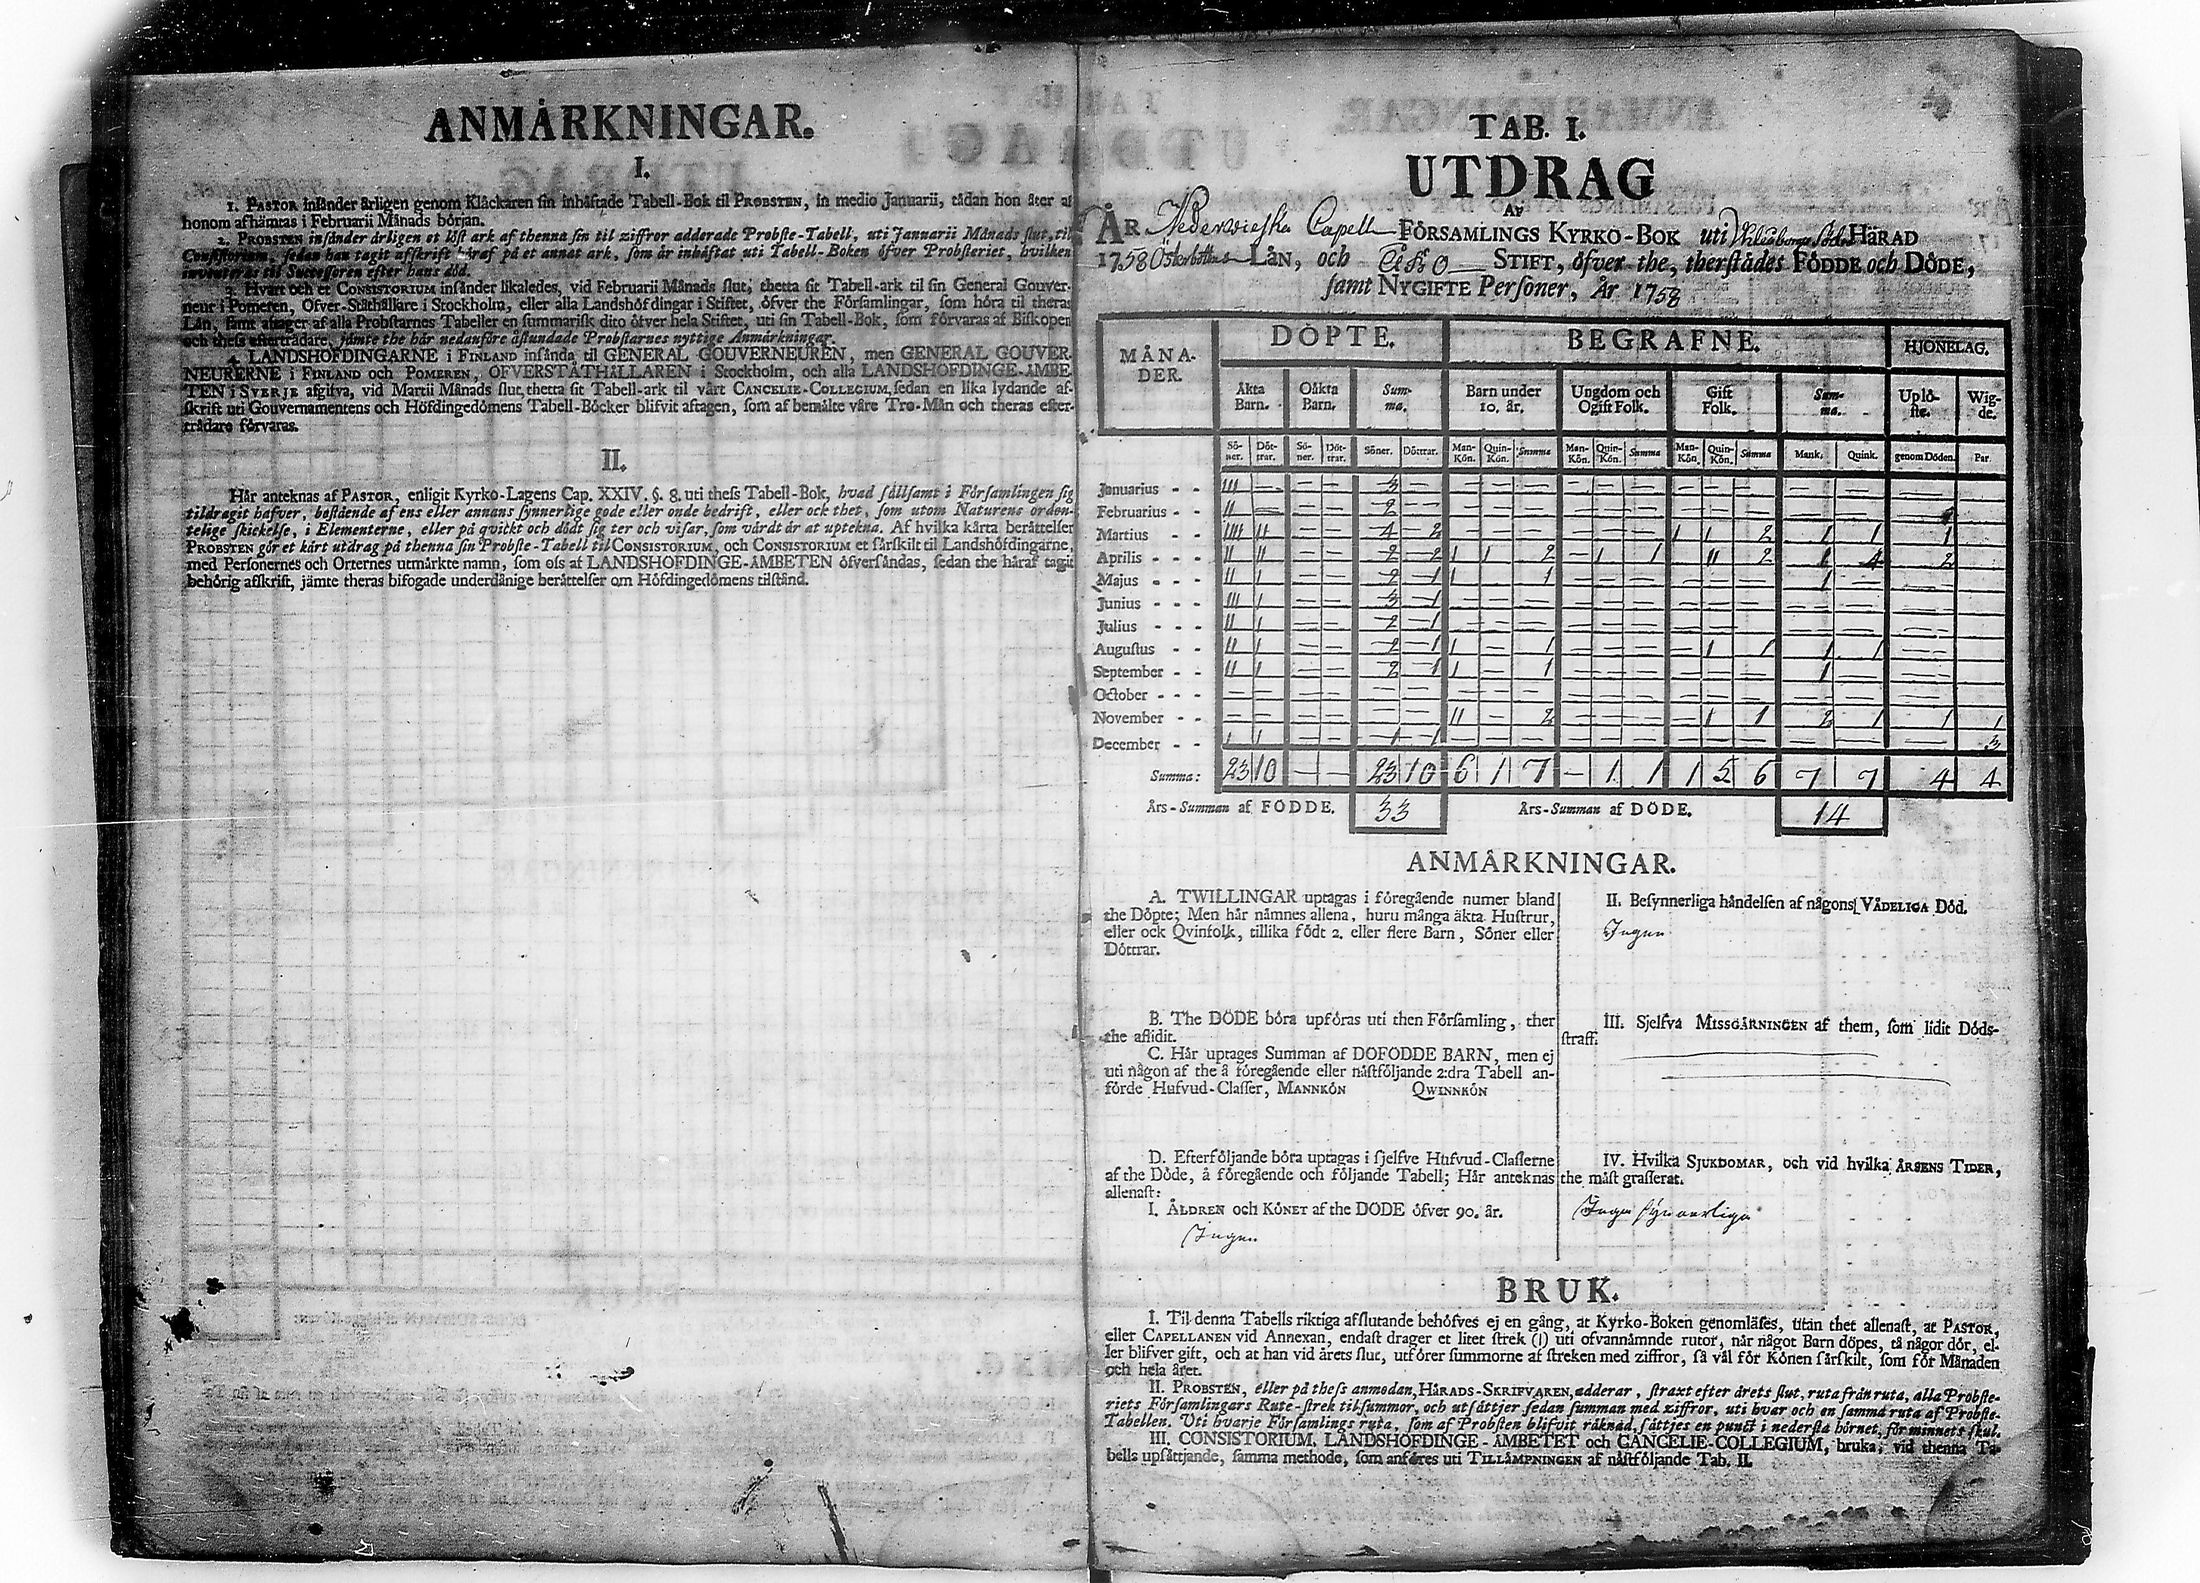 ANMÅRKNINGAR.
I.
1. PASTOR inſånder årligen genom Klåckaren ſin inhåftade Tabell-Bok til PROBSTEN, in medio Januarii, tådan hon åter af
honom afhåmtas i Februarii Månads bórjan.
2. PROBSTEN inſånder årligen et lóſt ark af thenna ſin til ziffror adderade Probſte-Tabell, uti Januarii Månads ſlut, til
Conſiſtorium, ſedan han tagit afſkrift håraf på et annat ark, ſom år inhåftat uti Tabell-Boken ófver Probſteriet, hvilken
inventeras til Succeſſoren efter hans dód.
3. Hvart och et CONSISTORIUM inſånder likaledes, vid Februarii Månads ſlut, thetta ſit Tabell-ark til ſin General Gouver-
neur i Pomeren, Ofver-Ståthållare i Stockholm, eller alla Landshófdingar i Stiftet, ófver the Fórſamlingar, ſom hóra til theras
Lån, ſamt aftager af alla Probſtarnes Tabeller en ſummariſk dito ófver hela Stiftet, uti ſin Tabell-Bok, ſom fórvaras af Biſkopen
och theſs eftertrådare, jåmte the hår nedanfóre åſtundade Probſtarnes nyttige Anmårkningar.
4. LANDSHÓFDINGARNE i FINLAND inſånda til GENERAL GOUVERNEUREN, men GENERAL GOUVER-
NEURERNE i FINLAND och POMEREN, ÓFVERSTÅTHÅLLAREN i Stockholm, och alla LANDSHÓFDINGE-ÅMBE-
TEN i SVERJE afgifva, vid Martii Månads ſlut, thetta ſit Tabell-ark til vårt CANCELIE-COLLEGIUM, ſedan en lika lydande af-
ſkrift uti Gouvernamentens och Hófdingedómens Tabell-Bócker blifvit aftagen, ſom af bemålte våre Tro-Mån och theras efter-
trådare fórvaras.
II.
Hår anteknas af PASTOR, enligit Kyrko-Lagens Cap. XXIV. §. 8. uti theſs Tabell-Bok, hvad ſållſamt i Fórſamlingen ſig
tildragit hafver, beſtående af ens eller annans ſynnerlige gode eller onde bedrift, eller ock thet, ſom utom Naturens orden-
telige ſkickelſe, i Elementerne, eller på qvickt och dódt ſig ter och viſar, ſom vårdt år at uptekna. Af hvilka kårta beråttelſer
PROBSTEN gór et kårt utdrag på thenna ſin Probſte-Tabell til CONSISTORIUM, och CONSISTORIUM et ſårſkilt til Landshófdingarne,
med Perſonernes och Orternes utmårkte namn, ſom oſs af LANDSHOFDINGE-ÅMBETEN ófverſåndas, ſedan the håraf tagit
behórig afſkrift, jåmte theras bifogade underdånige beråttelſer om Hófdingedómens tilſtånd.
TAB. I.
UTDRAG
AF
ÅR Nederwieska Capell FÓRSAMLINGS KYRKO-BOK uti HÅRAD
1758 Österbottns LÅN, och Åbo STIFT, ófver the, therſtådes FÓDDE och DÓDE,
ſamt NYGIFTE Perſoner, År 1758
MÅNA- DER. DÓPTE. BEGRAFNE. HJONELAG.
Åkta Barn. Oåkta Barn. Sum- ma. Barn under 10. år. Ungdom och Ogift Folk. Gift Folk. Sum- ma. Upló- ſte. Wig- de.
Só- ner. Dót- trar. Só- ner. Dót- trar. Sóner. Dóttrar. Man- Kón. Quin- Kón. Summa Man- Kón. Quin- Kón. Summa Man- Kón. Quin- Kón. Summa Mank. Quink. genom Dóden. Par.
Januarius - - III — — — 3 — — — — — — — — — — — — —
Februarius - - II — — — 2 — — — — — — — — — — — —
Martius - - - IIII II — — 4 2 — — — — — — 1 1 2 1 1 1
Aprilis - - - II II — — 2 2 1 1 2 — 1 1 — II 2 1 4 2
Majus - - - II 1 — — 2 1 1 — 1 — — — — — — 1 — —
Junius - - - III 1 — — 3 1 — — — — — — — — — — — —
Julius - - - II 1 — — 2 1 — — — — — — — — — — — —
Auguſtus - - II 1 — — 2 1 1 — 1 — — — — 1 1 1 1 —
September - - II 1 — — 2 1 1 — 1 — — — — — — 1 — —
October - - - — — — — — — — — — — — — — — — — — —
November - - — — — — — — II — 2 — — — — 1 1 2 1 1 1
December - - 1 1 — — 1 1 — — — — — — — — — — — — 3
Summa: 23 10 — — 23 10 6 1 7 — 1 1 1 5 6 7 7 4 4
Års-Summan af FÓDDE. 33 Års-Summan af DÓDE. 14
ANMÅRKNINGAR.
A. TWILLINGAR uptagas i fóregående numer bland
the Dópte; Men hår nåmnes allena, huru många åkta Huſtrur,
eller ock Qvinfolk, tillika fódt 2. eller flere Barn, Sóner eller
Dóttrar.
B. The DÓDE bóra upfóras uti then Fórſamling, ther
the aflidit.
C. Hår uptages Summan af DÓFÓDDE BARN, men ej
uti någon af the å fóregående eller nåſtfóljande 2:dra Tabell an-
fórde Hufvud-Claſſer, MANNKÓN QWINNKÓN
D. Efterfóljande bóra uptagas i ſjelfve Hufvud-Claſſerne
af the Dóde, å fóregående och fóljande Tabell; Hår anteknas
allenaſt:
I. ÅLDREN och KÓNET af the DÓDE ófver 90. år.
Ingen
II. Beſynnerliga håndelſen af någons VÅDELIGA Dód.
Ingen
III. Sjelfva MISSGÅRNINGEN af them, ſom lidit Dóds-
ſtraff.
IV. Hvilka SJUKDOMAR, och vid hvilka ÅRSENS TIDER,
the måſt graſſerat.
Inga synnerliga
BRUK.
I. Til denna Tabells riktiga afſlutande behófves ej en gång, at Kyrko-Boken genomlåſes, utan thet allenaſt, at PASTOR,
eller CAPELLANEN vid Annexan, endaſt drager et litet ſtrek (|) uti ofvannåmnde rutor, når något Barn dópes, tå någor dór, el-
ler blifver gift, och at han vid årets ſlut, utfórer ſummorne af ſtreken med ziffror, ſå vål fór Kónen ſårſkilt, ſom fór Månaden
och hela året.
II. PROBSTEN, eller på theſs anmodan, HÅRADS-SKRIFVAREN, adderar, ſtraxt efter årets ſlut, ruta från ruta, alla Probſte-
riets Fórſamlingars Rute-ſtrek tilſummor, och utſåttjer ſedan ſumman med ziffror, uti hvar och en ſamma ruta af Probſte-
Tabellen. Uti hvarje Fórſamlings ruta, ſom af Probſten blifvit råknad, ſåttjes en punct i nederſta hórnet, fór minnets ſkul.
III. CONSISTORIUM, LANDSHÓFDINGE-ÅMBETET och CANCELIE-COLLEGIUM, bruka, vid thenna Ta-
bells upſåttjande, ſamma methode, ſom anfóres uti TILLÅMPNINGEN af nåſtfóljande Tab. II.